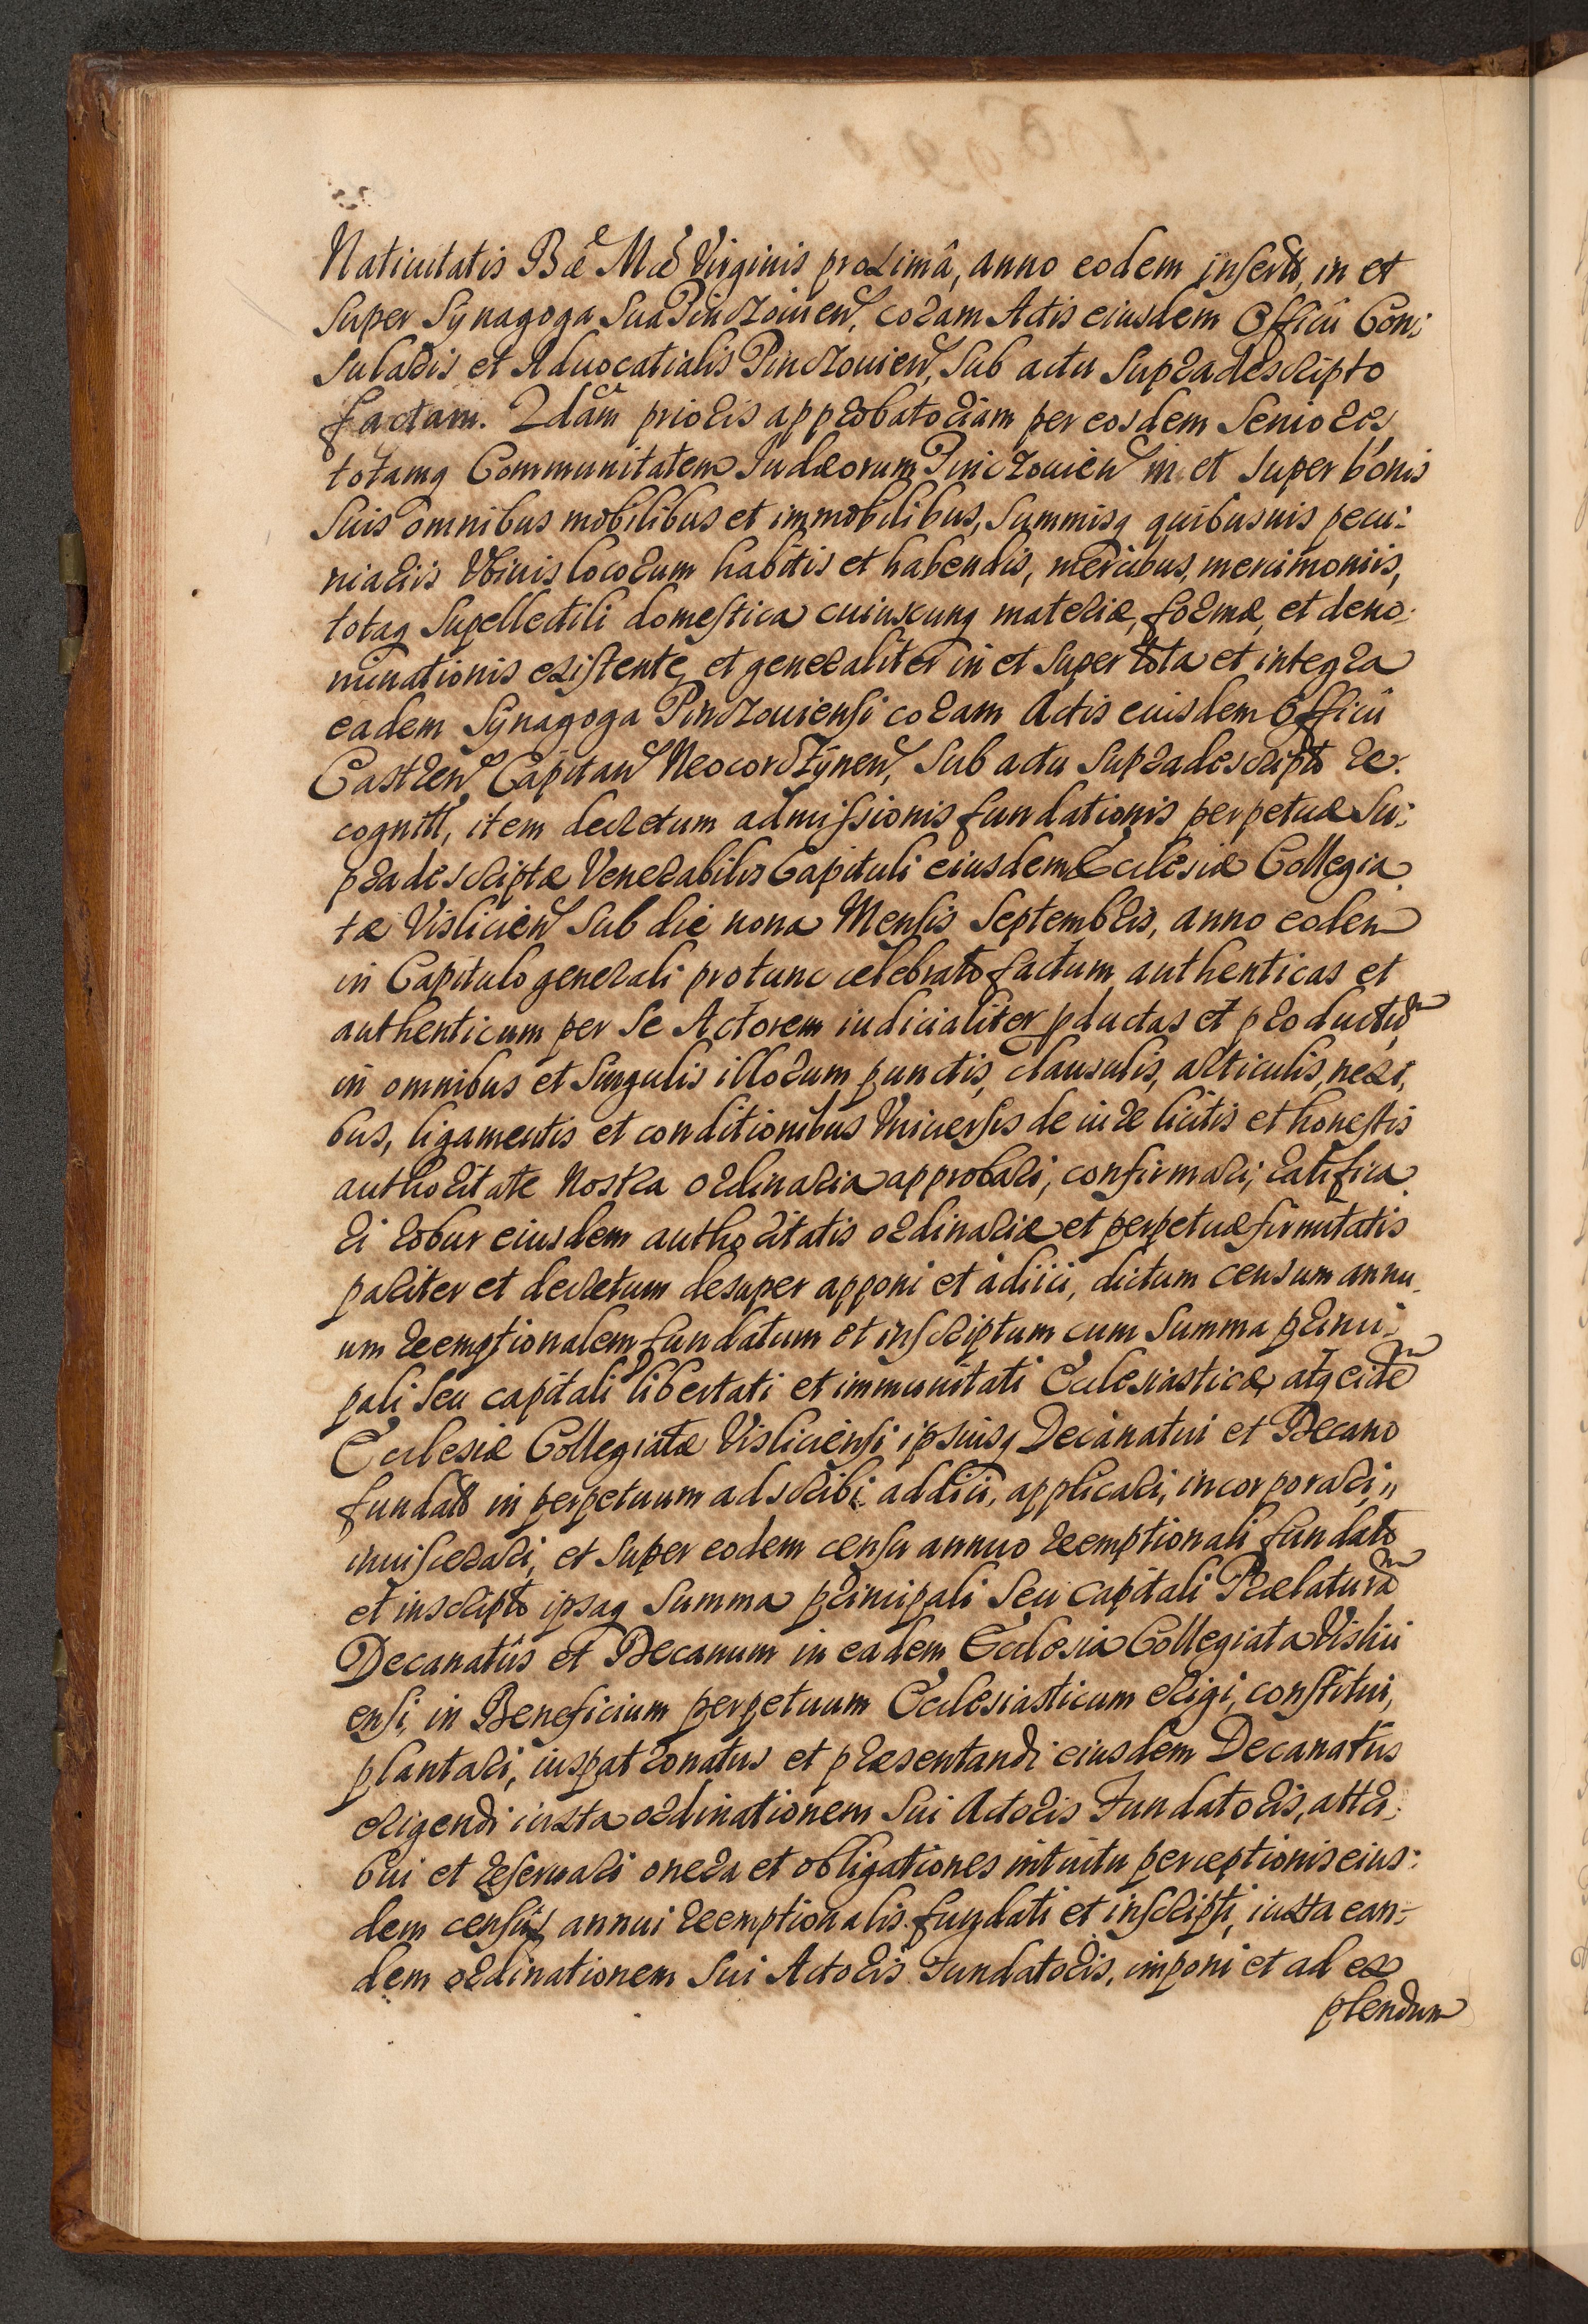 Natiuitatis Bæ Mæ Virginis proximâ, anno eodem inserto, in et
super Synagoga sua Pinczouien, coram Actis eiusdem Officii Con:
sularis et Aduocatialis Pinczouien, sub actu supradescripto
factam. 2dam prioris approbatoriam per eosdem Seniores,
totamq Communitatem Judæorum Pinczouien in et super bonis
suis omnibus mobilibus et immobilibus, summisq quibusuis pecu:
niariis Vbiuis locorum habitis et habendis, mercibus, mercimoniis,
totaq supellectili domestica cuiuscunq materiæ, formæ, et deno:
minationis existente, et generaliter in et super tota et integra
eadem Synagoga Pinczouiensi coram Actis euisdem Officii
Castren Capitan Neocorczynen, sub actu supradescripto re:
cognitt, item decretum admissionis fundationis perpetuæ su:
pradescriptæ Venerabilis Capituli eiusdem Ecclesiæ Collegia
tæ Vislicien sub die nona Mensis Septembris, anno eodem
in Capitulo generali protunc celebrato factum, authenticas et
authenticum per se Actorem iudicialiter pductas et productu,
in omnibus et singulis illorum punctis, clausulis, articulis, nexi,
bus, ligamentis et conditionibus Vniuersis de iure licitis et honestis
authoritate nostra ordinaria approbari, confirmari, ratifica
ri robur eiusdem authoritatis ordinariæ et perpetuæ firmitatis
pariter et decretum desuper apponi et adiici, dictum censum annu
um reemptionalem fundatum et inscriptum cum summa princi:
pali seu capitali libertati et immunitati Ecclesiasticæ, atq eide
Ecclesiæ Collegiatæ Visliciensi ipsiusq Decanatui et Decano
fundato in perpetuum adscribi, addici, applicari, incorporari,
inuiscerari, et super eodem censu annuo reemptionali fundato
et inscripto ipsaq summa principali seu capitali Prælatura
Decanatûs et Decanum in eadem Ecclesia Collegiata Vislici
ensi, in Beneficium perpetuum Ecclesiasticum erigi, constitui,
plantari, iuspatronatus et præsentandi eiusdem Decanatûs
erigendi iuxta ordinationem sui Actoris Fundatoris, attri:
bui et reseruari onera et obligationes intuitu perceptionis eius:
dem censûs annui reemptionalis fundati et inscripti, iuxta ean:
dem ordinationem sui Actoris Fundatoris, imponi et ad ex
plendum